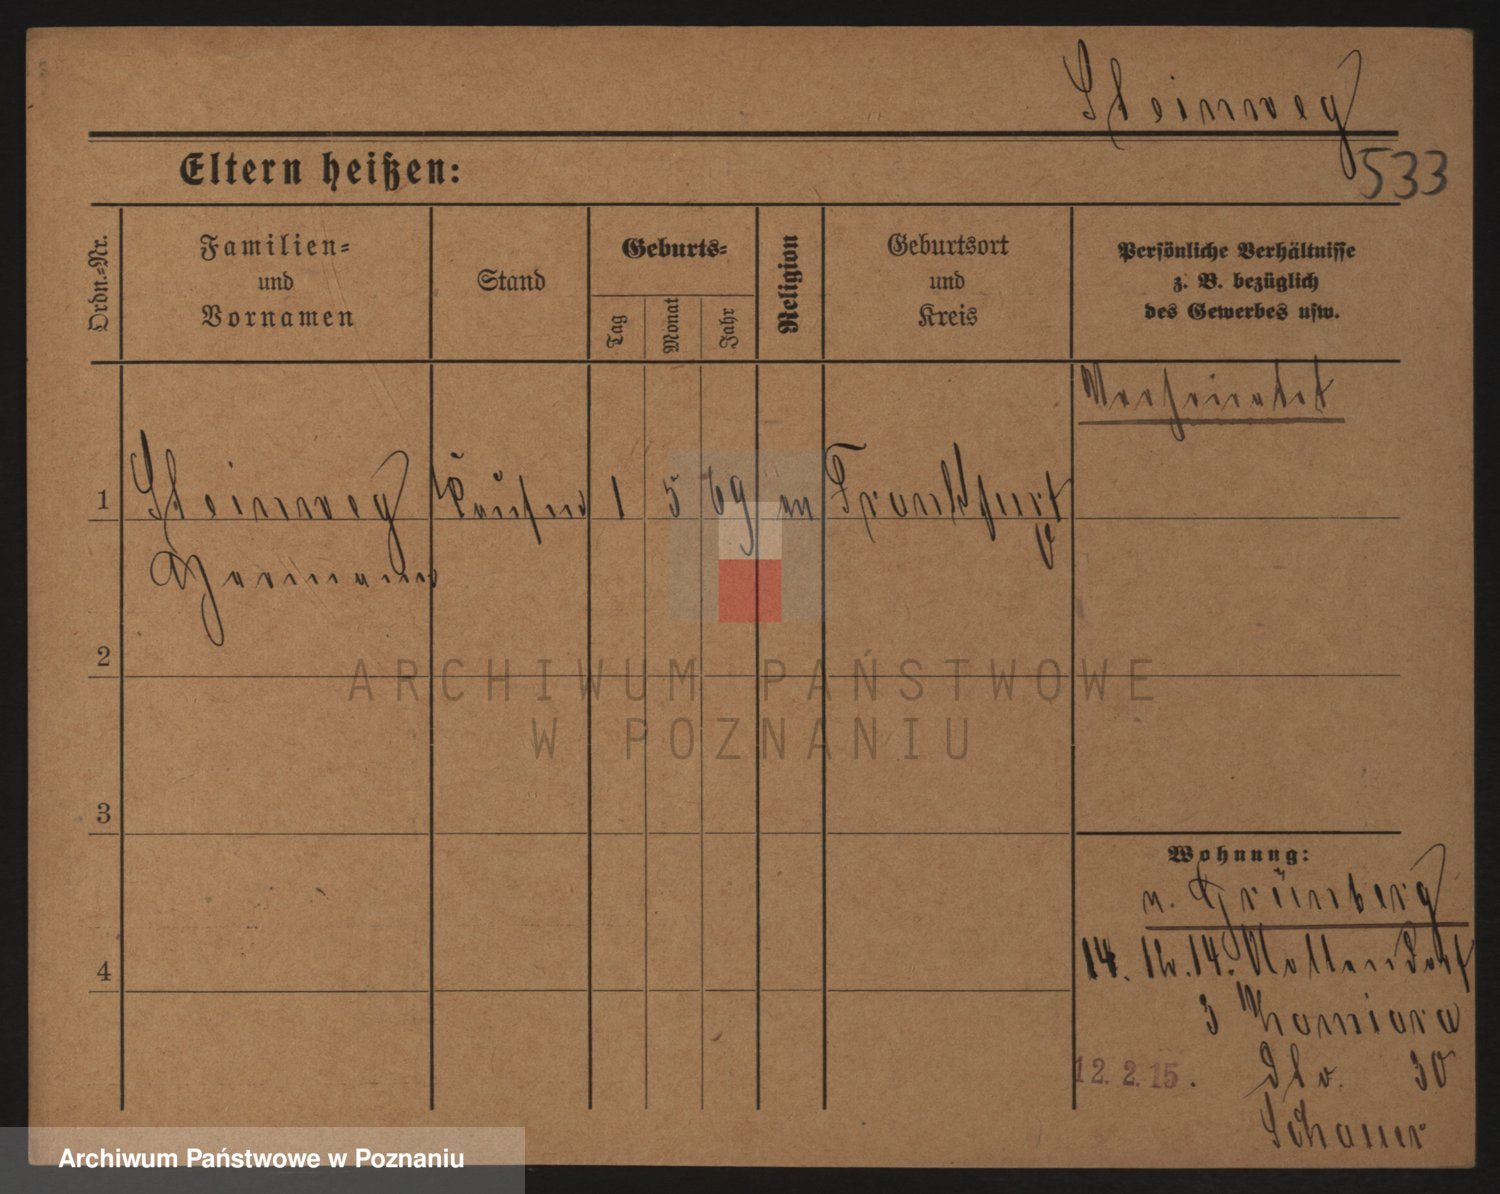 Steinweg
533
Eltern heißen:
Ordn.=Nr.
Familien=
und
Vornamen
Stand
Geburts=
Tag
Monat
Jahr
Religion
Geburtsort
und
Kreis
Persönliche Verhältnisse
z. B. bezüglich
des Gewerbes usw.
Verheiratet
1 Steinweg Kaufm 1 5 69 ev Frankfurt
Hermann
2
3
4
Wohnung:
n. Grünberg
14. 12. 14.
3
12. 2. 15. 30
Schauer
ARCHIWUM PAŃSTWOWE
W POZNANIU
Archiwum Państwowe w Poznaniu